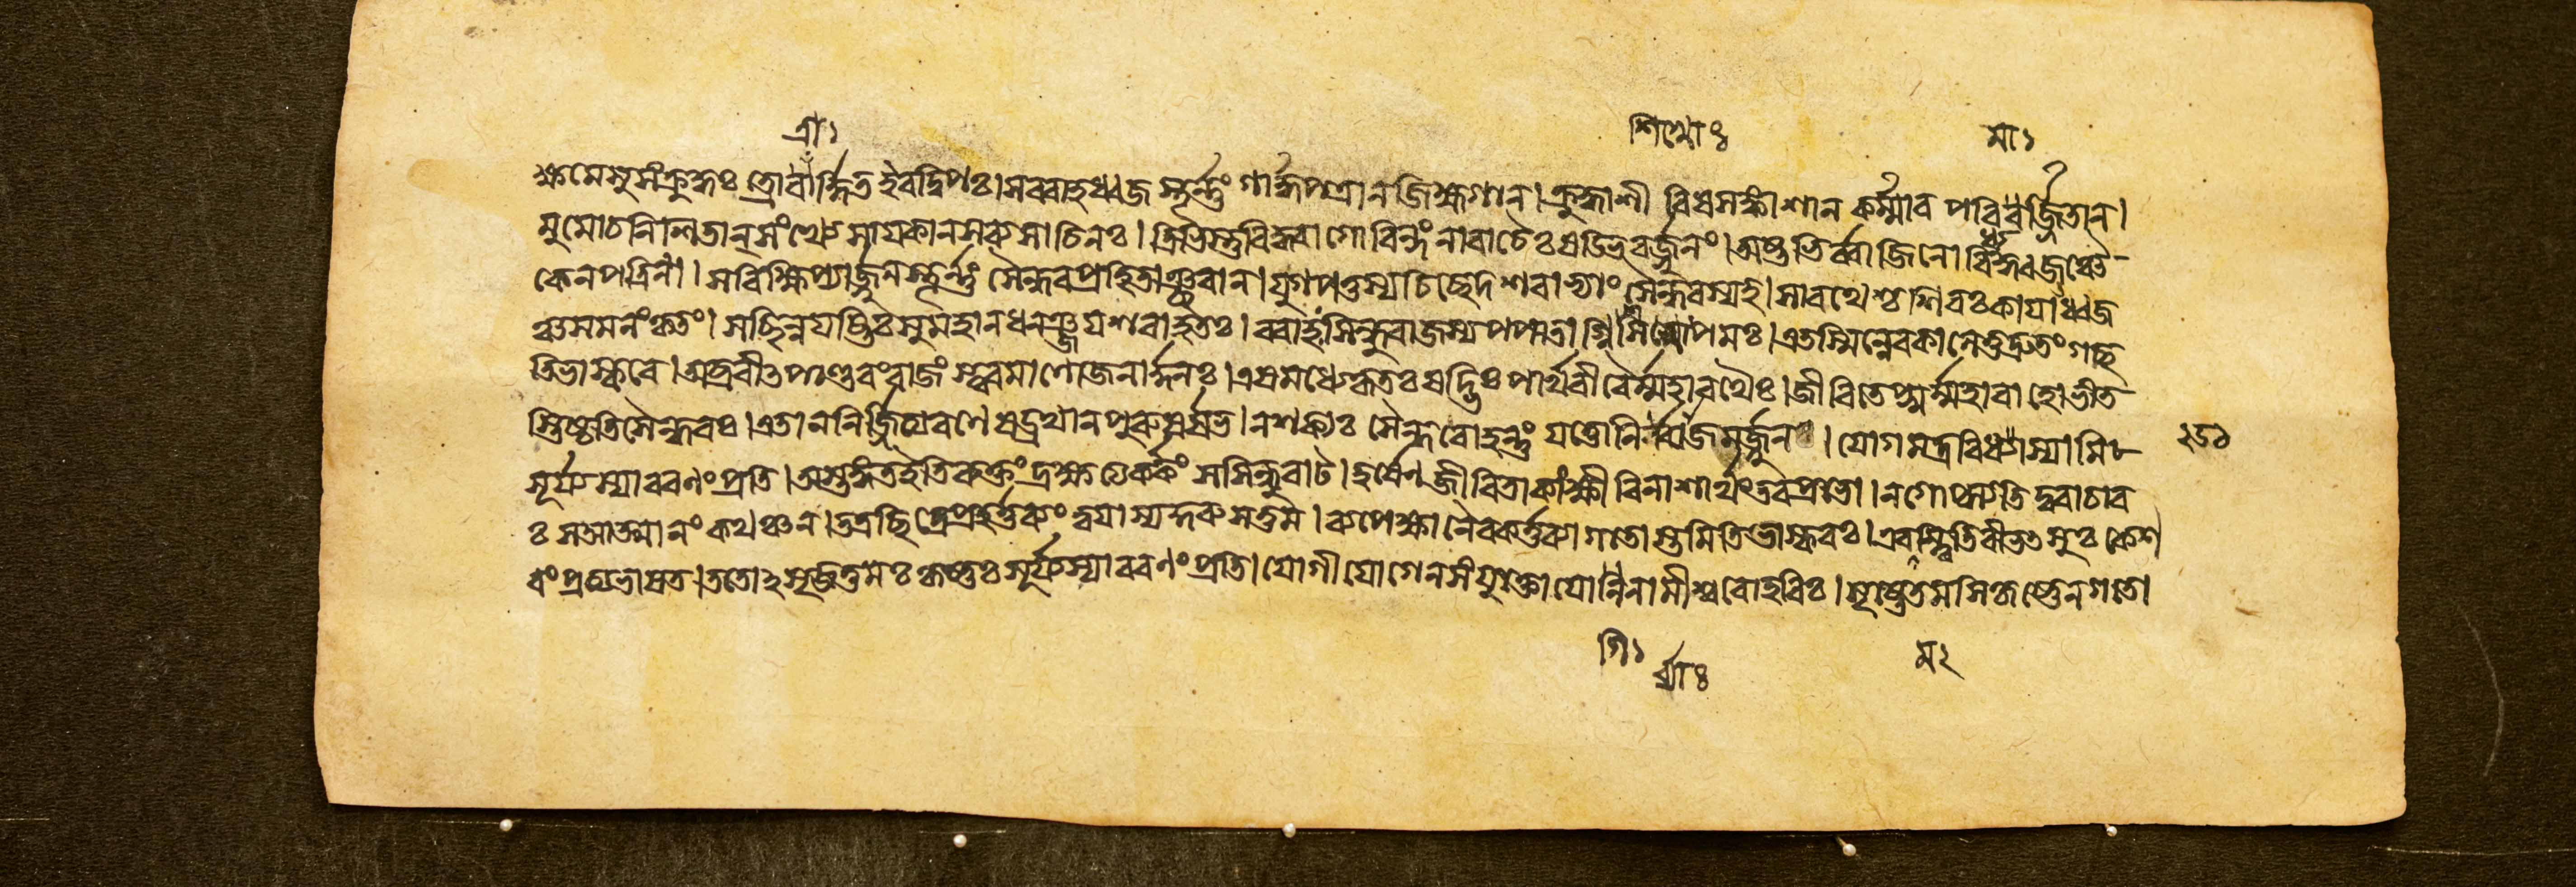 ত্রা১ শিখোঃ মা১
ক্ষমেসুসংক্রুদ্ধঃ তোত্রার্দ্দিত ইবদ্বিপঃ।সবরাহধ্বজ স্তূর্ন্নং গার্দ্ধপত্রানজিহ্মগান।ক্রুদ্ধাশী বিষসঙ্কাশান কর্ম্মার পরিমার্জ্জিতান।
মুমোচনিশিতান্ সংখ্যে সায়কানসব্যসাচিনঃ।ত্রিভিস্তুবিদ্ধা গোবিন্দং নারাচৈঃ ষড্ভিরর্জ্জুনং।অষ্টভির্ব্বাজিনো বিদ্ধা ধ্বজঞ্চৈ
কেনপত্রিনা।সবিক্ষিপ্যার্জ্জুনস্তূর্ন্নং সৈন্ধবপ্রহিতাঞ্ছরান।যুগপত্তস্যচিচ্ছেদ শরাভ্যাং সৈন্ধবস্যহ।সারথেশ্চ শিরঃকায়াদ্ধ্বজ
ঞ্চসমলংকৃতং।সছিন্নযষ্টিঃসুমহান ধনঞ্জয়শরাহতঃ।বরাহঃ সিন্ধুরাজস্য পপাতাগ্নি শিখোপমঃ।এতস্মিন্নেবকালেতু দ্রুতং গচ্ছ
তিভাস্করে।অব্রবীত্ পাণ্ডবং রাজং স্ত্বরমাণোজনার্দ্দনঃ।এষমধ্যেকৃতঃ ষড্ভিঃ পার্থবীরৈর্ম্মহারথৈঃ।জীবিতেপ্সুর্ম্মহাবাহো ভীত
স্তিষ্ঠতিসৈন্ধবঃ।এতাননির্জ্জিত্যরণে ষড্রথানপুরুষর্ষভ।নশক্যঃ সৈন্ধবোহন্তুং যত্তোনির্ব্যাজমর্জ্জুন।যোগমত্রবিধাস্যামি ২৬৪
সূর্য্যস্যাবরণং প্রতি।অস্তঙ্গতইতিব্যক্তং দ্রক্ষ্যত্যেকঃ সসিন্ধুরাট।হর্ষেন জীবিতাকাংক্ষী বিনাশার্থং তবপ্রভো।নগোপ্স্যতি দুরাচার
ঃ সআত্মানং কথঞ্চন।তত্রছিদ্রেপ্রহর্ত্তব্যং ত্বয়াস্যকুরুসত্তম।ব্যপেক্ষা নৈবকর্ত্তব্যা গতোস্তমিতিভাস্করঃ।এবমস্ত্বিতি বীভত্সুঃ কেশ
বং প্রত্যভাষত।ততোহসৃজত্তমঃ কৃষ্ণঃ সূর্য্যস্যাবরণং প্রতি।যোগী যোগেনসংযুক্তো যোগিনামীশ্বরোহরিঃ।সৃষ্টেতমসি কৃষ্ণেনগতো
গি১ র্ব্যাঃ ম২